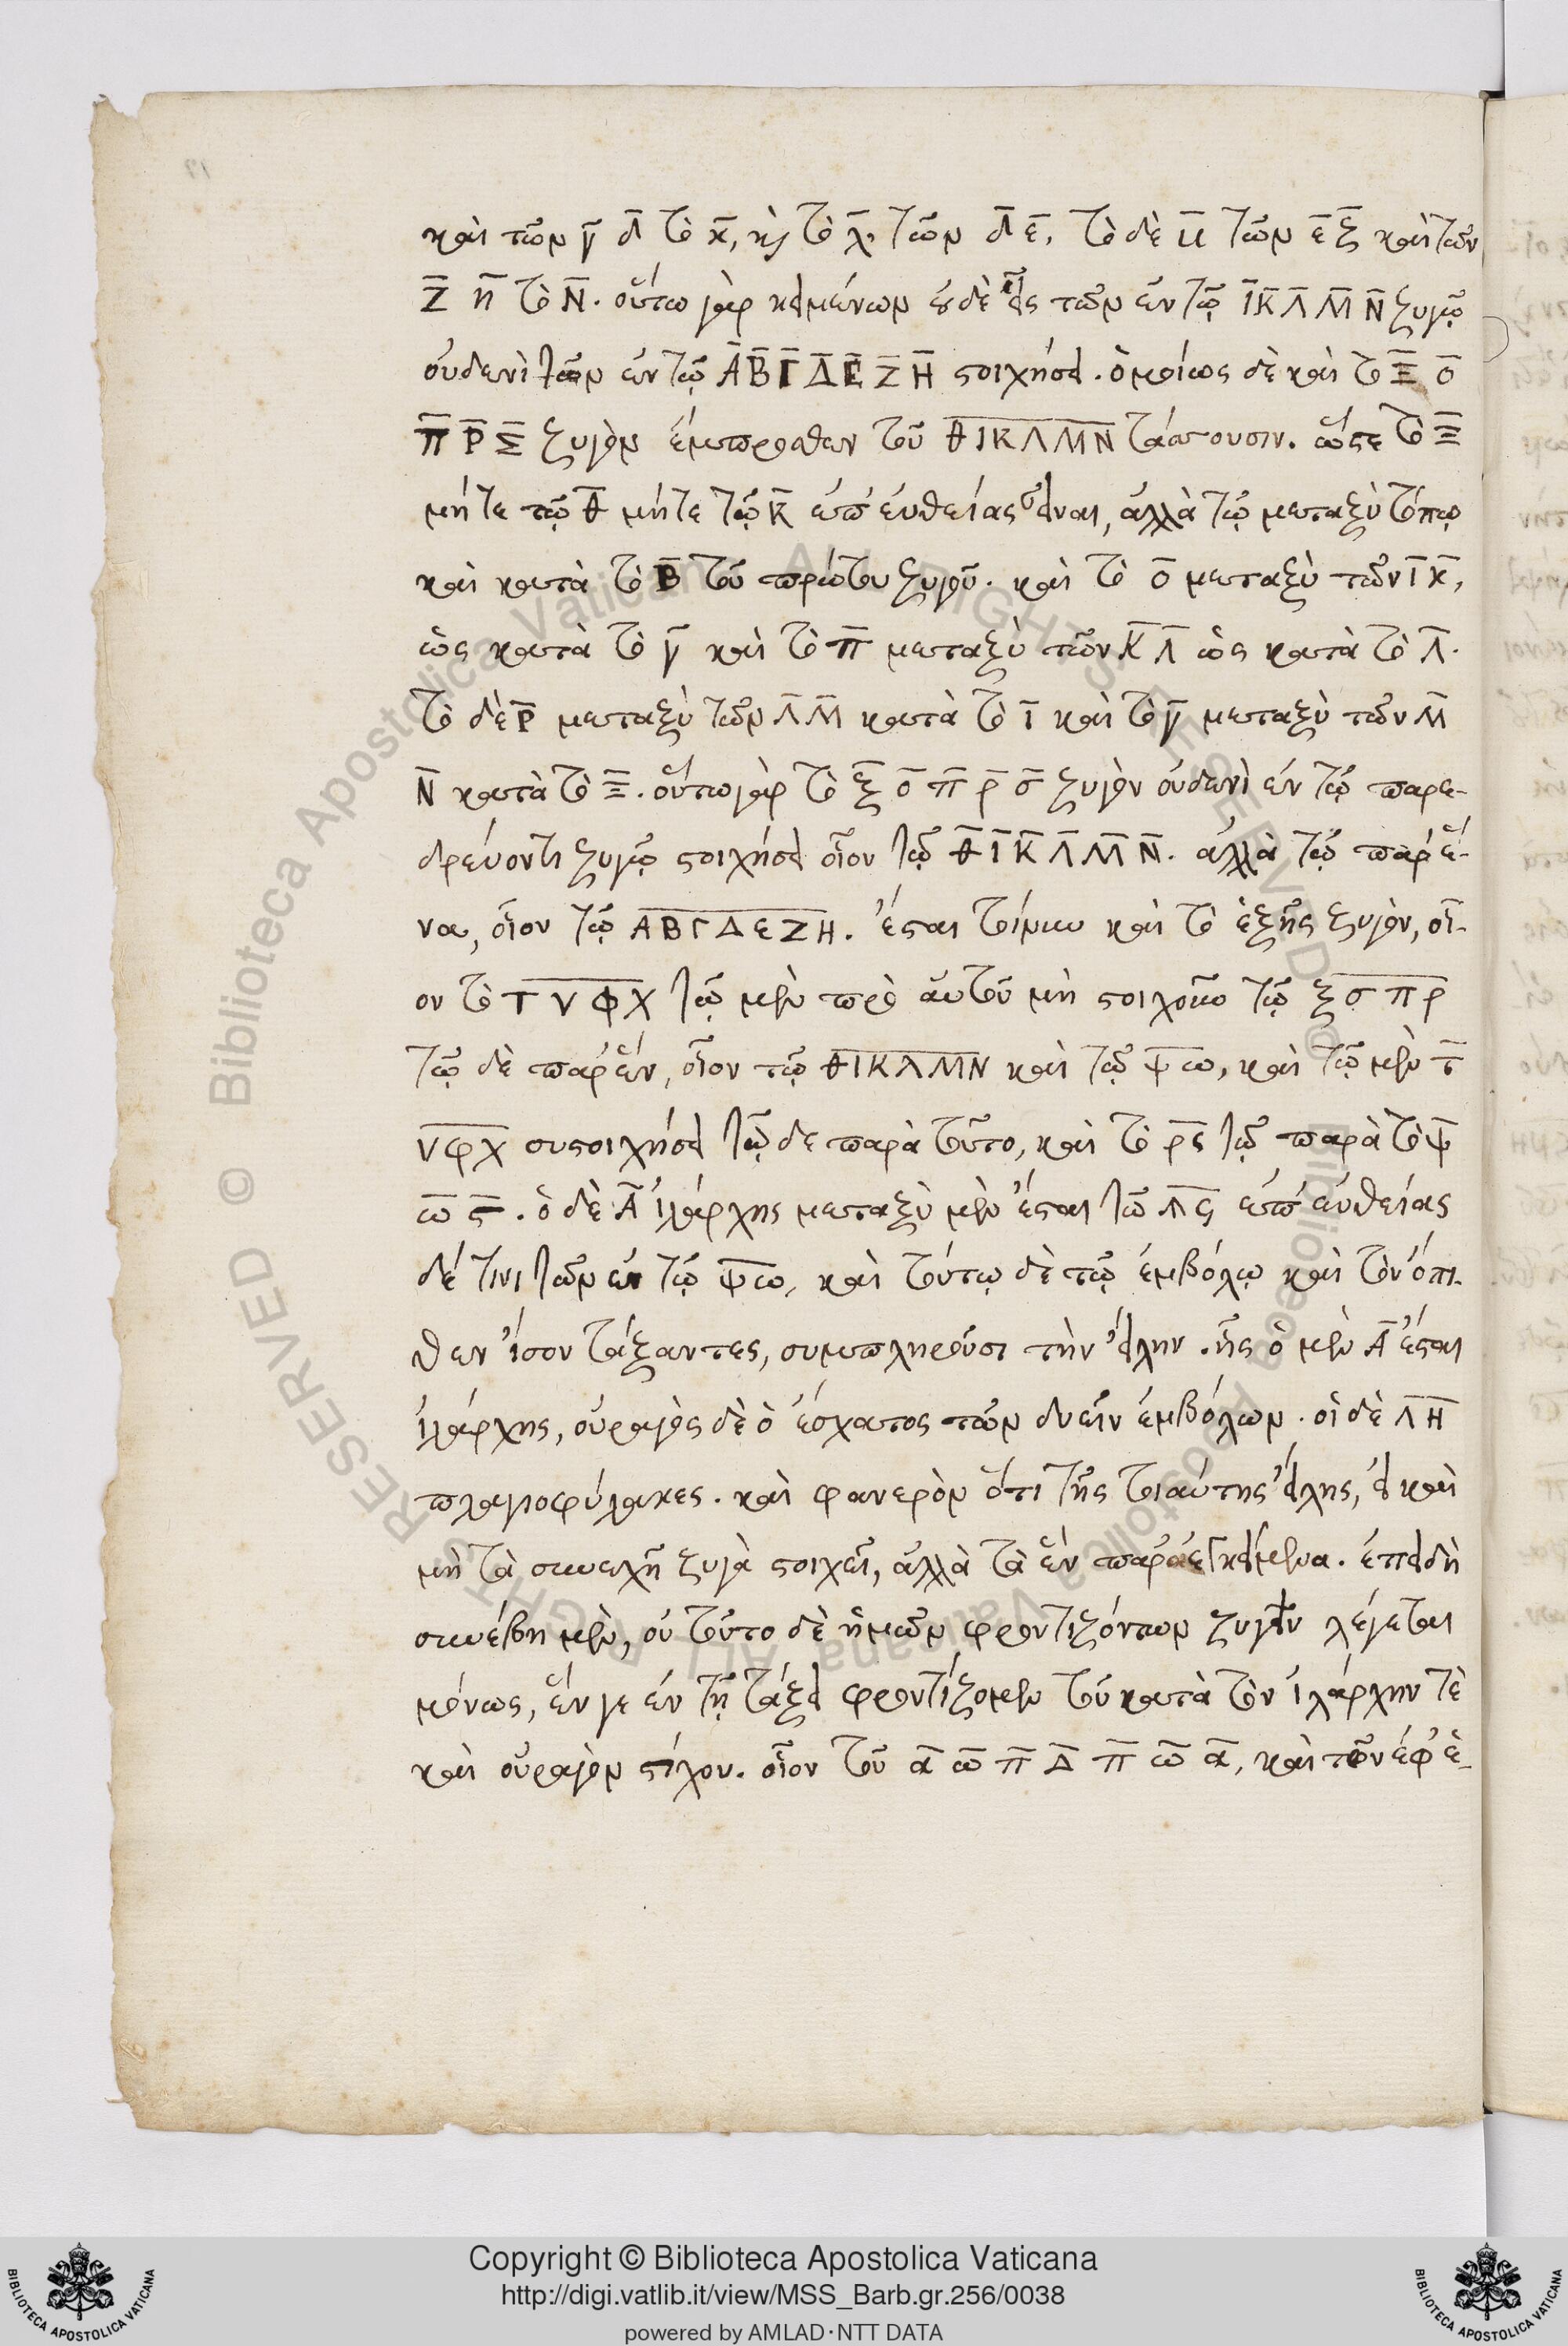 καὶ τῶν γ̅ δ̅ τὸ κ̅, κ̀ τὸ λ̅· τῶν δ̅ ε̅, τὸ δὲ μ̅ τῶν ε̅ ξ̅ καὶ τῶν
Ζ̅ η̅ τὸ Ν̅. οὕτω γὰρ κειμένων οὐδὲ εἷς τῶν ἐν τῷ Ι̅ Κ̅ Λ̅ Μ̅ Ν̅ ζυγῷ
οὐδενὶ τῶν ἐν τῷ Α̅ Β̅ Γ̅ Δ̅ Ε̅ Ζ̅ Η̅ στοιχήσει. ὁμοίως δὲ καὶ τὸ Ξ̅ ο̅
Π̅ Ρ̅ Σ̅ ζυγὸν ἔμπροσθεν τοῦ Θ̅Ι̅Κ̅Λ̅Μ̅Ν̅ τάσσουσιν. ὥστε τὸ Ξ̅
μήτε τῷ Θ̅ μήτε τῷ Κ̅ ἐπ' εὐθείας εἶναι, ἀλλὰ τῷ μεταξὺ τόπῳ
καὶ κατὰ τὸ Β̅ τοῦ πρώτου ζυγοῦ. καὶ τὸ ο̅ μεταξὺ τῶν ι̅ κ̅,
ὡς κατὰ τὸ γ̅ καὶ τὸ π̅ μεταξὺ τῶν κ̅ λ̅ ὡς κατὰ τὸ λ̅.
τὸ δὲ Ρ̅ μεταξὺ τῶν Λ̅ Μ̅ κατὰ τὸ ι̅ καὶ τὸ γ̅ μεταξὺ τῶν Μ̅
Ν̅ κατὰ τὸ Ξ̅. οὕτω γὰρ τὸ ξ̅ ο̅ π̅ ρ̅ σ̅ ζυγὸν οὐδενὶ ἐν τῷ παρε-
δρεύοντι ζυγῷ στοιχήσει οἷον τῷ Θ̅ Ι̅ Κ̅ Λ̅ Μ̅ Ν̅. ἀλλὰ τῷ παρ' ἕ-
να, οἷον τῷ Α̅Β̅Γ̅Δ̅Ε̅Ζ̅Η̅. ἔσται τοίνυν καὶ τὸ ἑξῆς ζυγὸν, οἷ-
ον τὸ Τ̅Υ̅Φ̅Χ̅ τῷ μὲν πρὸ αὐτοῦ μὴ στοιχοῦν τῷ ξ̅ ο̅ π̅ ρ̅
τῷ δὲ παρ' ἓν, οἷον τῷ Θ̅Ι̅Κ̅Λ̅Μ̅Ν̅ καὶ τῷ ψ̅ ω̅, καὶ τῷ μὲν τ̅
υ̅φ̅χ̅ συστοιχήσει τῷ δε παρὰ τοῦτο, καὶ τὸ ρ̅ς̅ τῷ παρὰ τὸ ψ̅
ω̅ ς̅. ὁ δὲ Α̅ ἰλάρχης μεταξὺ μὲν ἔσται τῶ Λ̅ ς̅ ἐπ' εὐθείας
δέ τινι τῶν ἐν τῷ ψ̅ω̅, καὶ τούτῳ δὲ τῷ ἐμβόλῳ καὶ τὸν ὄπι-
θεν ἴσον τάξαντες, συμπληροῦσι τὴν εἴλην. ἧς ὁ μὲν Α̅ ἔσται
ἰλάρχης, οὐραγὸς δὲ ὁ ἔσχατος τῶν δυεῖν ἐμβόλων. οἱ δὲ Λ̅ Η̅
πλαγιοφύλακες. καὶ φανερὸν ὅτι τῆς τοιαύτης εἴλης, εἰ καὶ
μὴ τὰ συνεχῆ ζυγὰ στοιχεῖ, ἀλλὰ τὰ ἓν παρ' κείμενα. ἐπειδὴ
συνέβη μὲν, οὐ τοῦτο δὲ ἡμῶν φροντιζόντων ζυγεῖν λέγεται
μόνως, ἕν γε ἐν τῇ τάξει φροντίζομεν τοῦ κατὰ τὸν ἰλάρχην τὲ
καὶ οὐραγὸν στίχου. οἷον τοῦ α̅ ω̅ π̅ Δ̅ π̅ ω̅ α̅, καὶ τῶν ἐφ' ἑ-